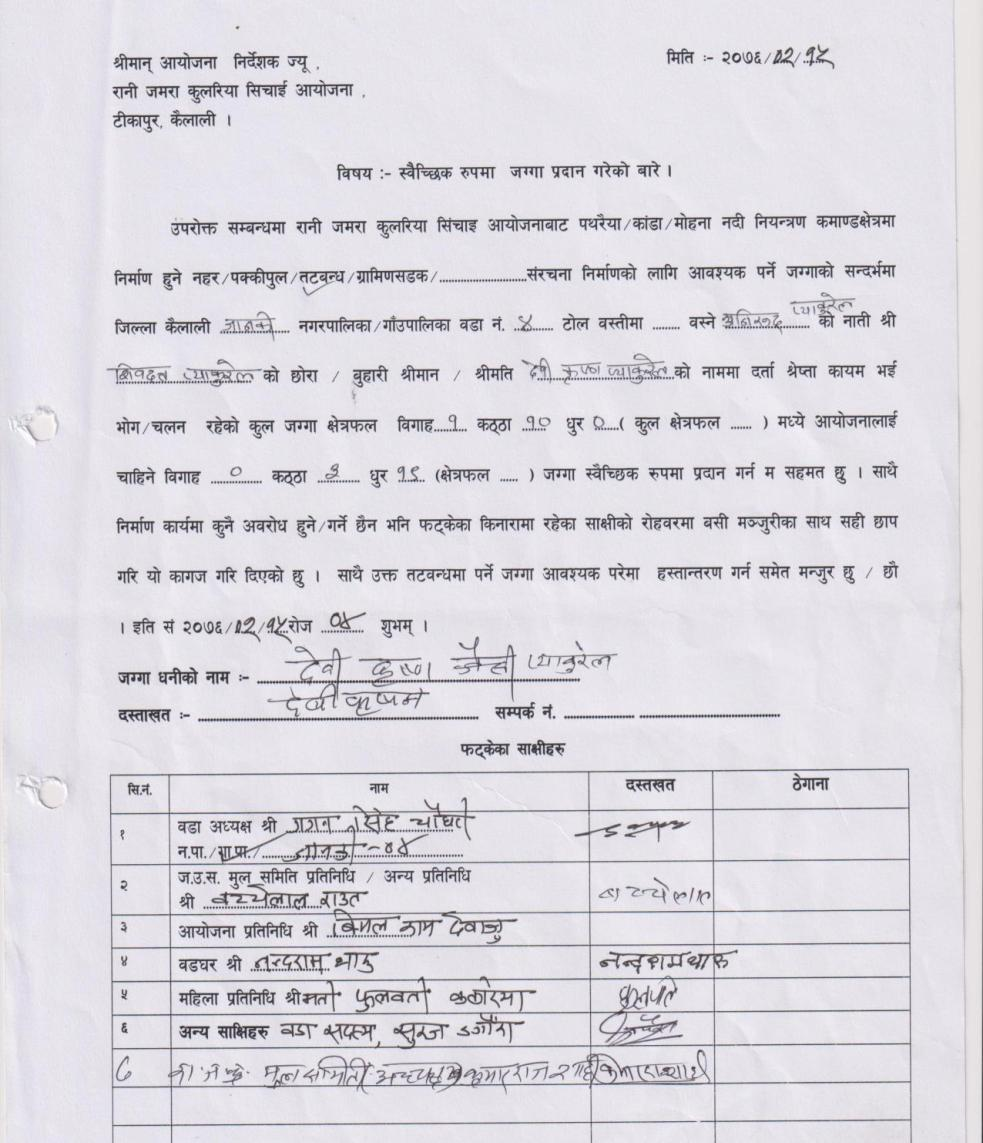 श्रीमान् आयोजना निर्देशक ज्यू ,
मिति :- २०७६/०२/१५
रानी जमरा कुलरिया सिचाई आयोजना ,
टीकापुर, कैलाली ।
विषय :- स्वैच्छिक रुपमा जग्गा प्रदान गरेको बारे ।
उपरोक्त सम्बन्धमा रानी जमरा कुलरिया सिंचाइ आयोजनाबाट पथरैया/कांडा/मोहना नदी नियन्त्रण कमाण्डक्षेत्रमा
निर्माण हुने नहर/पक्कीपुल/तटबन्ध/ग्रामिणसडक/........................संरचना निर्माणको लागि आवश्यक पर्ने जग्गाको सन्दर्भमा
जिल्ला कैलाली जानकी नगरपालिका/गाँउपालिका वडा नं. ४ टोल वस्तीमा ........ वस्ने प्याकुरेल को नाती श्री
प्याकुरेल को छोरा / बुहारी श्रीमान / श्रीमति देवी कृष्ण प्याकुरेल को नाममा दर्ता श्रेष्ता कायम भई
भोग/चलन रहेको कुल जग्गा क्षेत्रफल विगाह १ कठ्ठा १० धुर ० ( कुल क्षेत्रफल ...... ) मध्ये आयोजनालाई
चाहिने विगाह ० कठ्ठा ३ धुर (क्षेत्रफल ..... ) जग्गा स्वैच्छिक रुपमा प्रदान गर्न म सहमत छु । साथै
निर्माण कार्यमा कुनै अवरोध हुने/गर्ने छैन भनि फट्केका किनारामा रहेका साक्षीको रोहवरमा बसी मञ्जुरीका साथ सही छाप
गरि यो कागज गरि दिएको छु । साथै उक्त तटवन्धमा पर्ने जग्गा आवश्यक परेमा हस्तान्तरण गर्न समेत मन्जुर छु / छौ
। इति सं २०७६/०२/१५ रोज ०४ शुभम् ।
जग्गा धनीको नाम :- देवी कृष्ण जैसी प्याकुरेल
दस्ताखत :- देवी कृष्ण सम्पर्क नं. ................. ..................................
फट्केका साक्षीहरु
सि.नं. नाम दस्तखत ठेगाना
१ वडा अध्यक्ष श्री गगन सिंह चौधरी
न.पा./गा.पा./ जानकी -०४
२ ज.उ.स. मुल समिति प्रतिनिधि / अन्य प्रतिनिधि
श्री बच्चेलाल राउत बच्चेलाल
३ आयोजना प्रतिनिधि श्री बिमल राम
४ वडघर श्री नन्दराम थारु नन्दरामथारु
५ महिला प्रतिनिधि श्रीमती फुलवती कठरिया फुलवति
६ अन्य साक्षिहरु वडा सदस्य, सुरज डगौरा
७ मूल समिति अध्यक्ष कुमारराज शाही